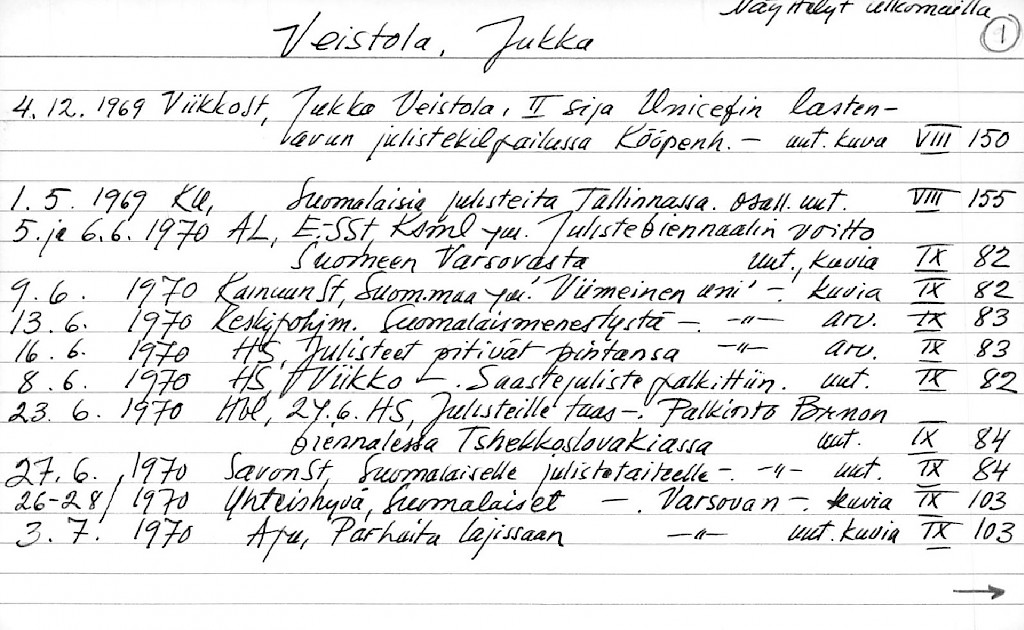 Näyttelyt ulkomailla
1
Veistola, Jukka
4.12. 1969 ViikkoSt, Jukka Veistola, II sija Unicefin lasten-
avun julistekilpailussa Kööpenh. - uut. kuva VIII 150
1. 5. 1969 KU, Suomalaisia julisteita Tallinnassa. osall. uut. VIII 155
5. ja 6.6. 1970 AL, E-SSt, Ksml ym. Julistebiennaalin voitto
Suomeen Varsovasta uut., kuvia IX 82
9. 6. 1970 KainuunSt, Suom.maa ym. 'Viimeinen uni' -. kuvia IX 82
13. 6. 1970 Keskipohjm. Suomalaismenestystä -. -"- arv. IX 83
16. 6. 1970 HS, Julisteet pitivät pintansa -"- arv. IX 83
8. 6. 1970 HS, Viikko -. Saastejuliste palkittiin. uut. IX 82
23. 6. 1970 Hbl, 24.6. HS, Julisteille taas -. Palkinto Brnon
biennalessa Tshekkoslovakiassa uut. IX 84
27. 6. 1970 SavonSt, Suomalaiselle julistetaiteelle -. -"- uut. IX 84
26-28/ 1970 Yhteishyvä, Suomalaiset -. Varsovan -. kuvia IX 103
3. 7. 1970 Apu, Parhaita lajissaan -"- uut. kuvia IX 103
→